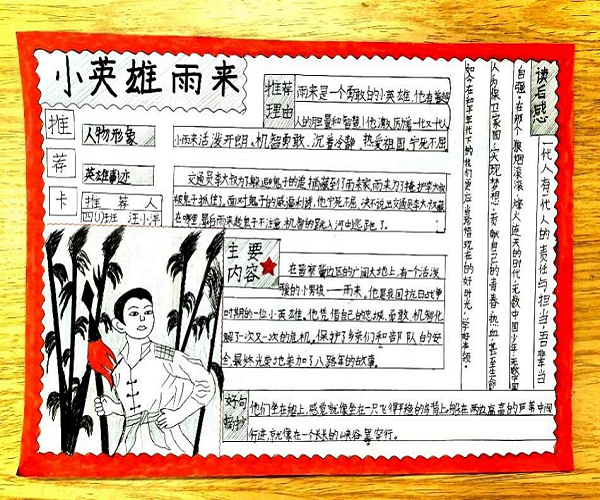 小英雄雨来
推荐卡
推荐理由
雨来是一个勇敢的小英雄,他有着超
人的胆量和智慧!他激励着一代又一代人
人物形象
小雨来活泼开朗、机智勇敢、沉着冷静、热爱祖国、宁死不屈
英雄事迹
推荐人
四(1)班 汪小洋
交通员李大叔为了躲避鬼子的追捕藏到了雨来家,雨来为了掩护李大叔
被鬼子抓住了,面对鬼子的威逼利诱,他宁死不屈,决不说出交通员李大叔藏
在哪里,最后雨来趁鬼子不注意,机智的跳入河中逃跑了。
主要内容
在晋察冀边区的广阔大地上,有一个活泼
的小男孩——雨来。他是我国抗日战争
时期的一位小英雄,他凭借自己的忠诚、勇敢、机智化
解了一次又一次的危机。保护了乡亲们和部队的安
全,最终光荣地参加了八路军的故事。
好句摘抄
他们坐在船上,感觉就像坐在一只飞得平稳的鸟背上,船在两边高高的芦苇中间
行进,就像在一个长长的峡谷里穿行。
读后感
一代人有一代人的责任与担当,吾辈当
自强。在那个狼烟滚滚、烽火连天的时代,无数中国少年
人为保卫家园,实现梦想,贡献自己的青春、热血、甚至生命
如今在和平年代下的我们更应当珍惜现在的好时光,学好本领。